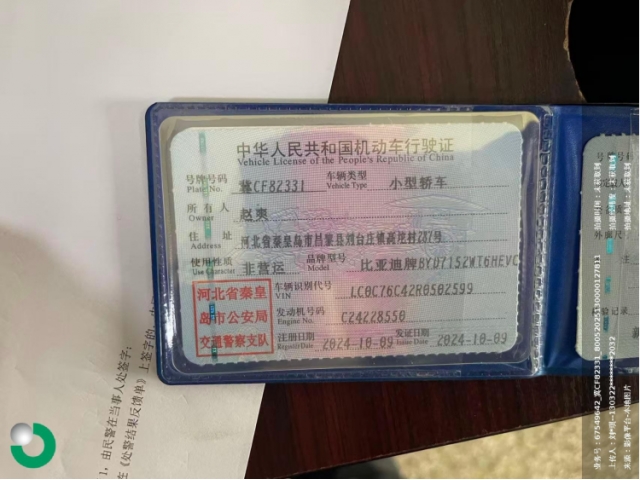 中华人民共和国机动车行驶证
Vehicle License of the People's Republic of China
号牌号码 冀CF82331 车辆类型 小型轿车
Plate No. Vehicle Type
所有人 赵爽
Owner
住址 河北省秦皇岛市昌黎县刘台庄镇高坨村247号
Address
使用性质 非营运 品牌型号 比亚迪牌BYD7152WT6HEVC
Use Character Model
河北省秦皇
岛市公安局
交通警察支队
车辆识别代号 LC0C76C42R0502599
VIN
发动机号码 C24228550
Engine No.
注册日期 2024-10-09 发证日期 2024-10-09
Register Date Issue Date
1，由民警在当事人处签字：
《处警结果反馈单》上签字的
业务号：67549642_冀CF82331
拍摄时间：未获取到
拍摄经纬度：未获取到
拍摄地址：未获取到
来源：影像平台-本地图片